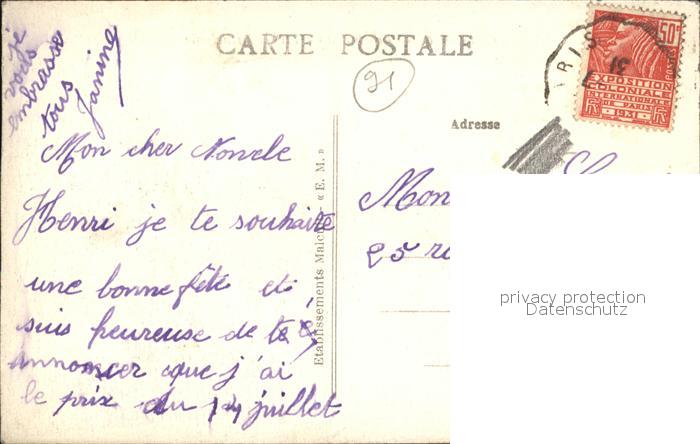 je
vous
embrasse
tous
Janine
CARTE POSTALE
91
Adresse
Mon cher Noncle
Henri je te souhaite
une bonne fête et
suis heureuse de te
annoncer que j'ai
le prix du 14 juillet
Etablissements Malc « E. M. »
Mon
25 r
50c
POSTES
EXPOSITION
COLONIALE
INTERNATIONALE
DE PARIS
1931
RF
RF
RIS
7
31
privacy protection
Datenschutz